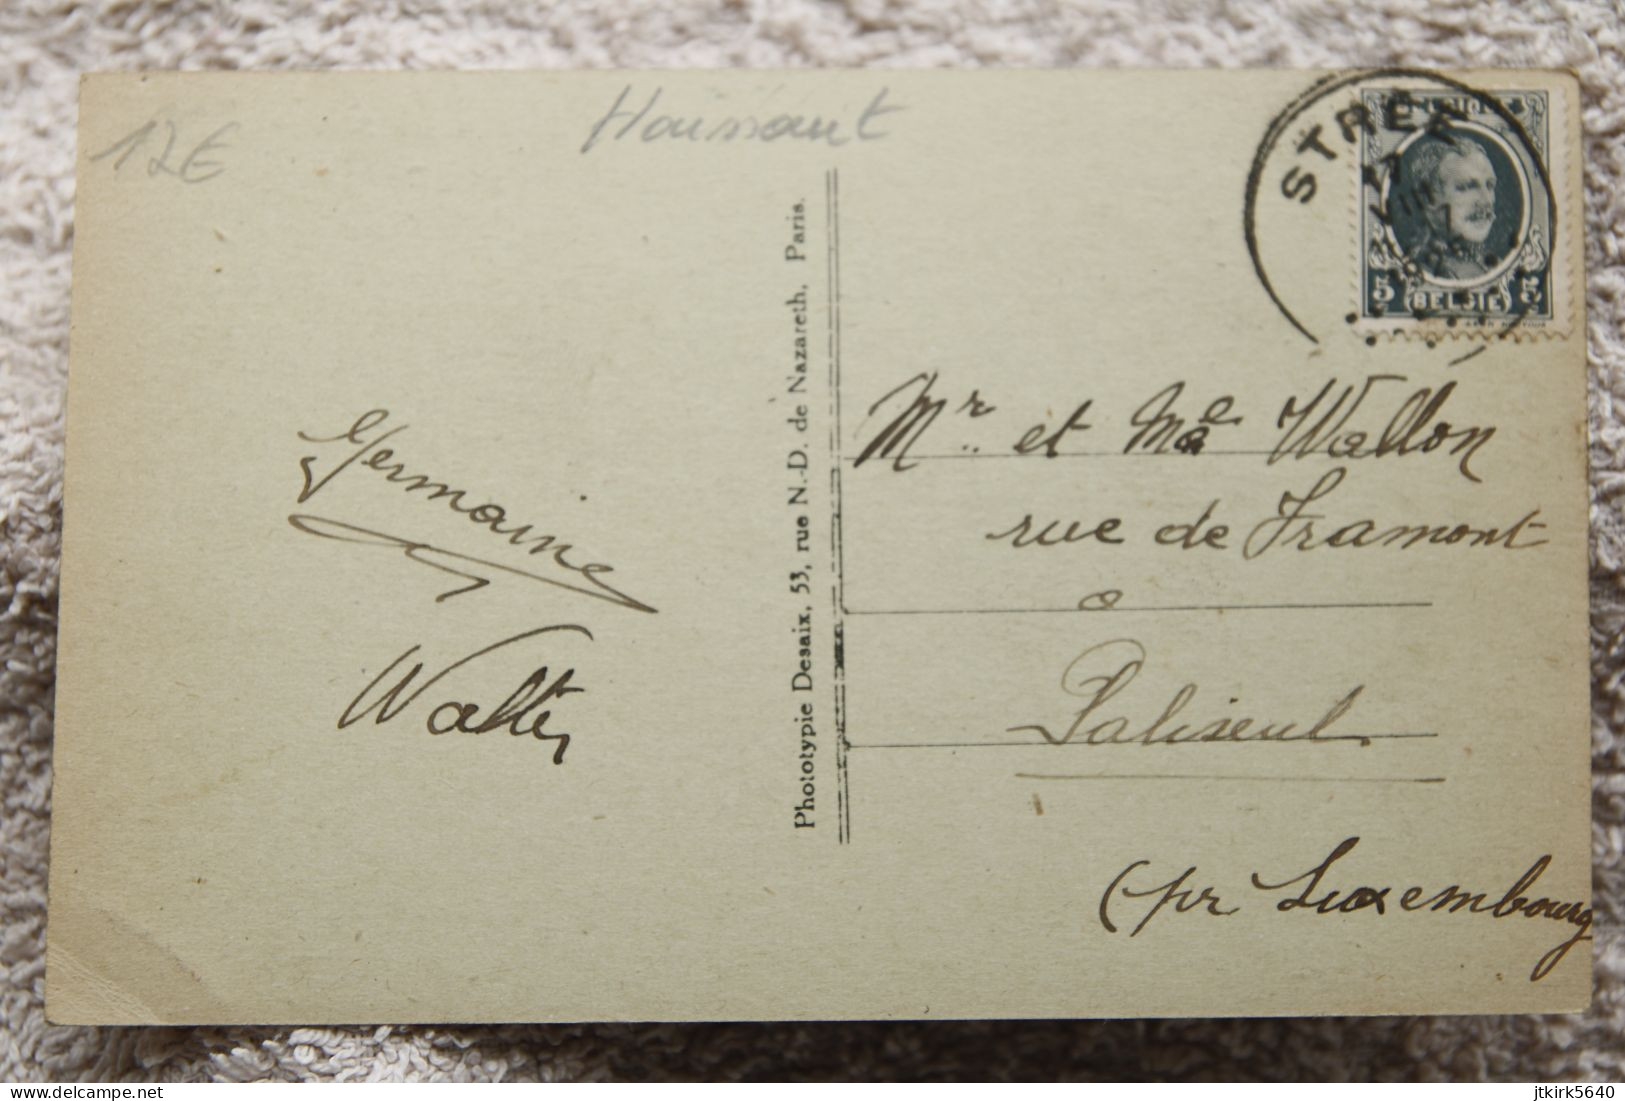 12€
Hainaut
STRÉE
17
VIII
1926
5 BELGIE 5
Phototypie Desaix, 53, rue N.-D. de Nazareth, Paris.
Germaine
Walter
Mr et Me Wallon
rue de Framont
à
Paliseul
(pr Luxembourg
delcampe.net
jtkirk5640